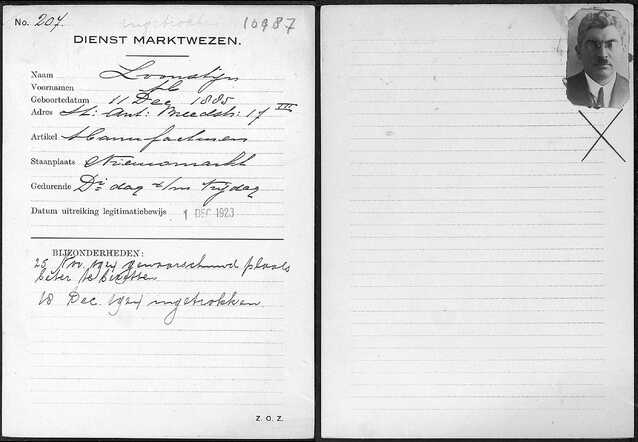 ingetrokken 10987
No. 207.
DIENST MARKTWEZEN.
Naam Loonstijn
Voornamen
Geboortedatum 11 Dec 1885
Adres St: Ant: Breedstr: 17 III
Artikel Manufacturen
Staanplaats Nieuwmarkt
Gedurende Di:dag t/m Vrijdag
Datum uitreiking legitimatiebewijs 1 DEC 1923
BIJZONDERHEDEN:
25 Nov. 1924 gewaarschuwd plaats
beter te bezetten
18 Dec. 1924 ingetrokken
Z. O. Z.